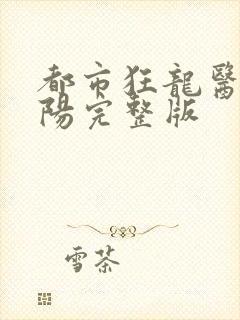 都市狂龍醫
陽完整版
雪茶